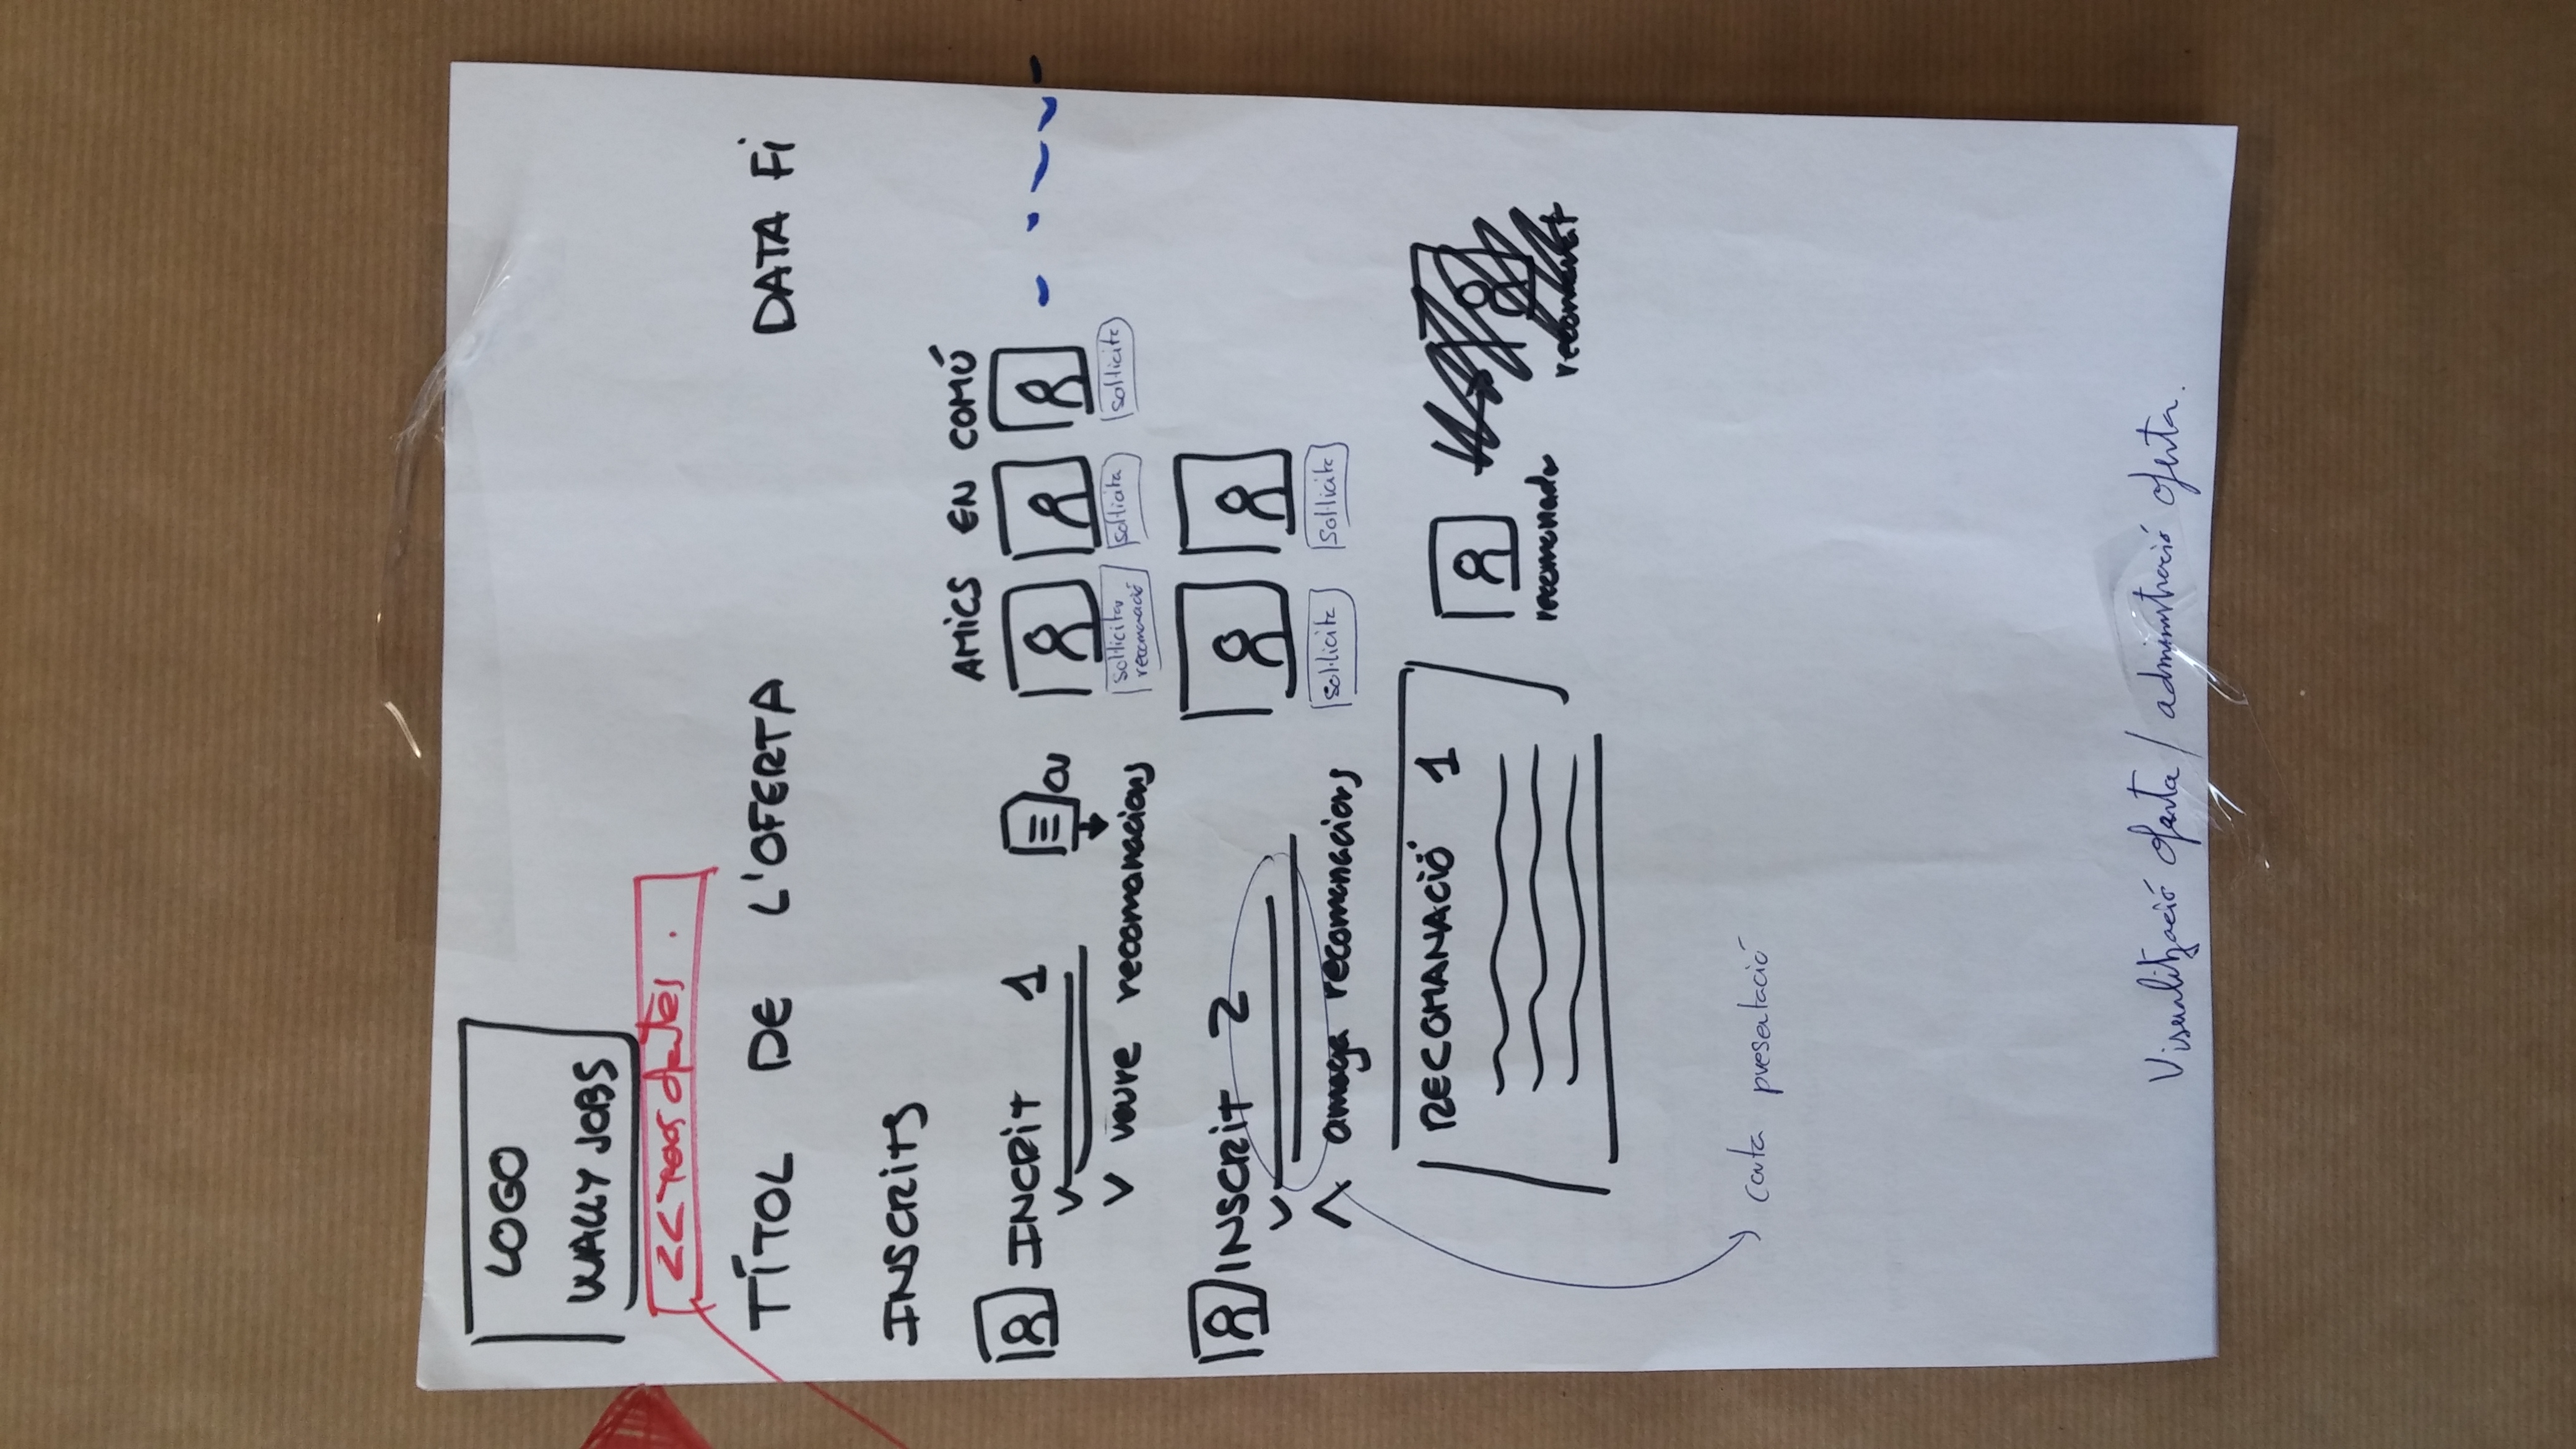 LOGO
WALLY JOBS
<<
TÍTOL DE L'OFERTA DATA Fi
INSCRiTS
AMiCS EN COMÚ
INCRiT 1 CV
V veure recomanacions
sol·licitar recomanació sol·licita sol·licita
INSCRiT 2
amaga recomanacions
sol·licita sol·licita
RECOMANACIÓ 1
recomanador recomanat
carta presentació
Visualització oferta / administració oferta.